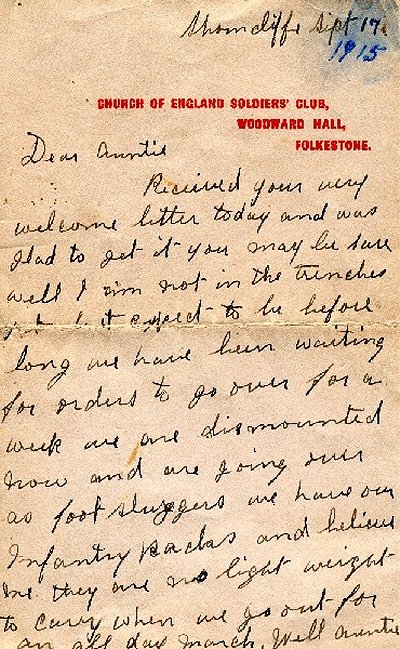 Shorncliffe Sept 17.
1915
CHURCH OF ENGLAND SOLDIERS' CLUB,
WOODWARD HALL,
FOLKESTONE.
Dear Auntie
Recieved your very
welcome letter today and was
glad to get it you may be sure
well I am not in the trenches
but expect to be before
long we have been waiting
for orders to go over for a
week we are dismounted
now and are going over
as foot sluggers we have our
Infantry packs and believe
me they are no light weight
to carry when we go out for
an all day march. Well Auntie